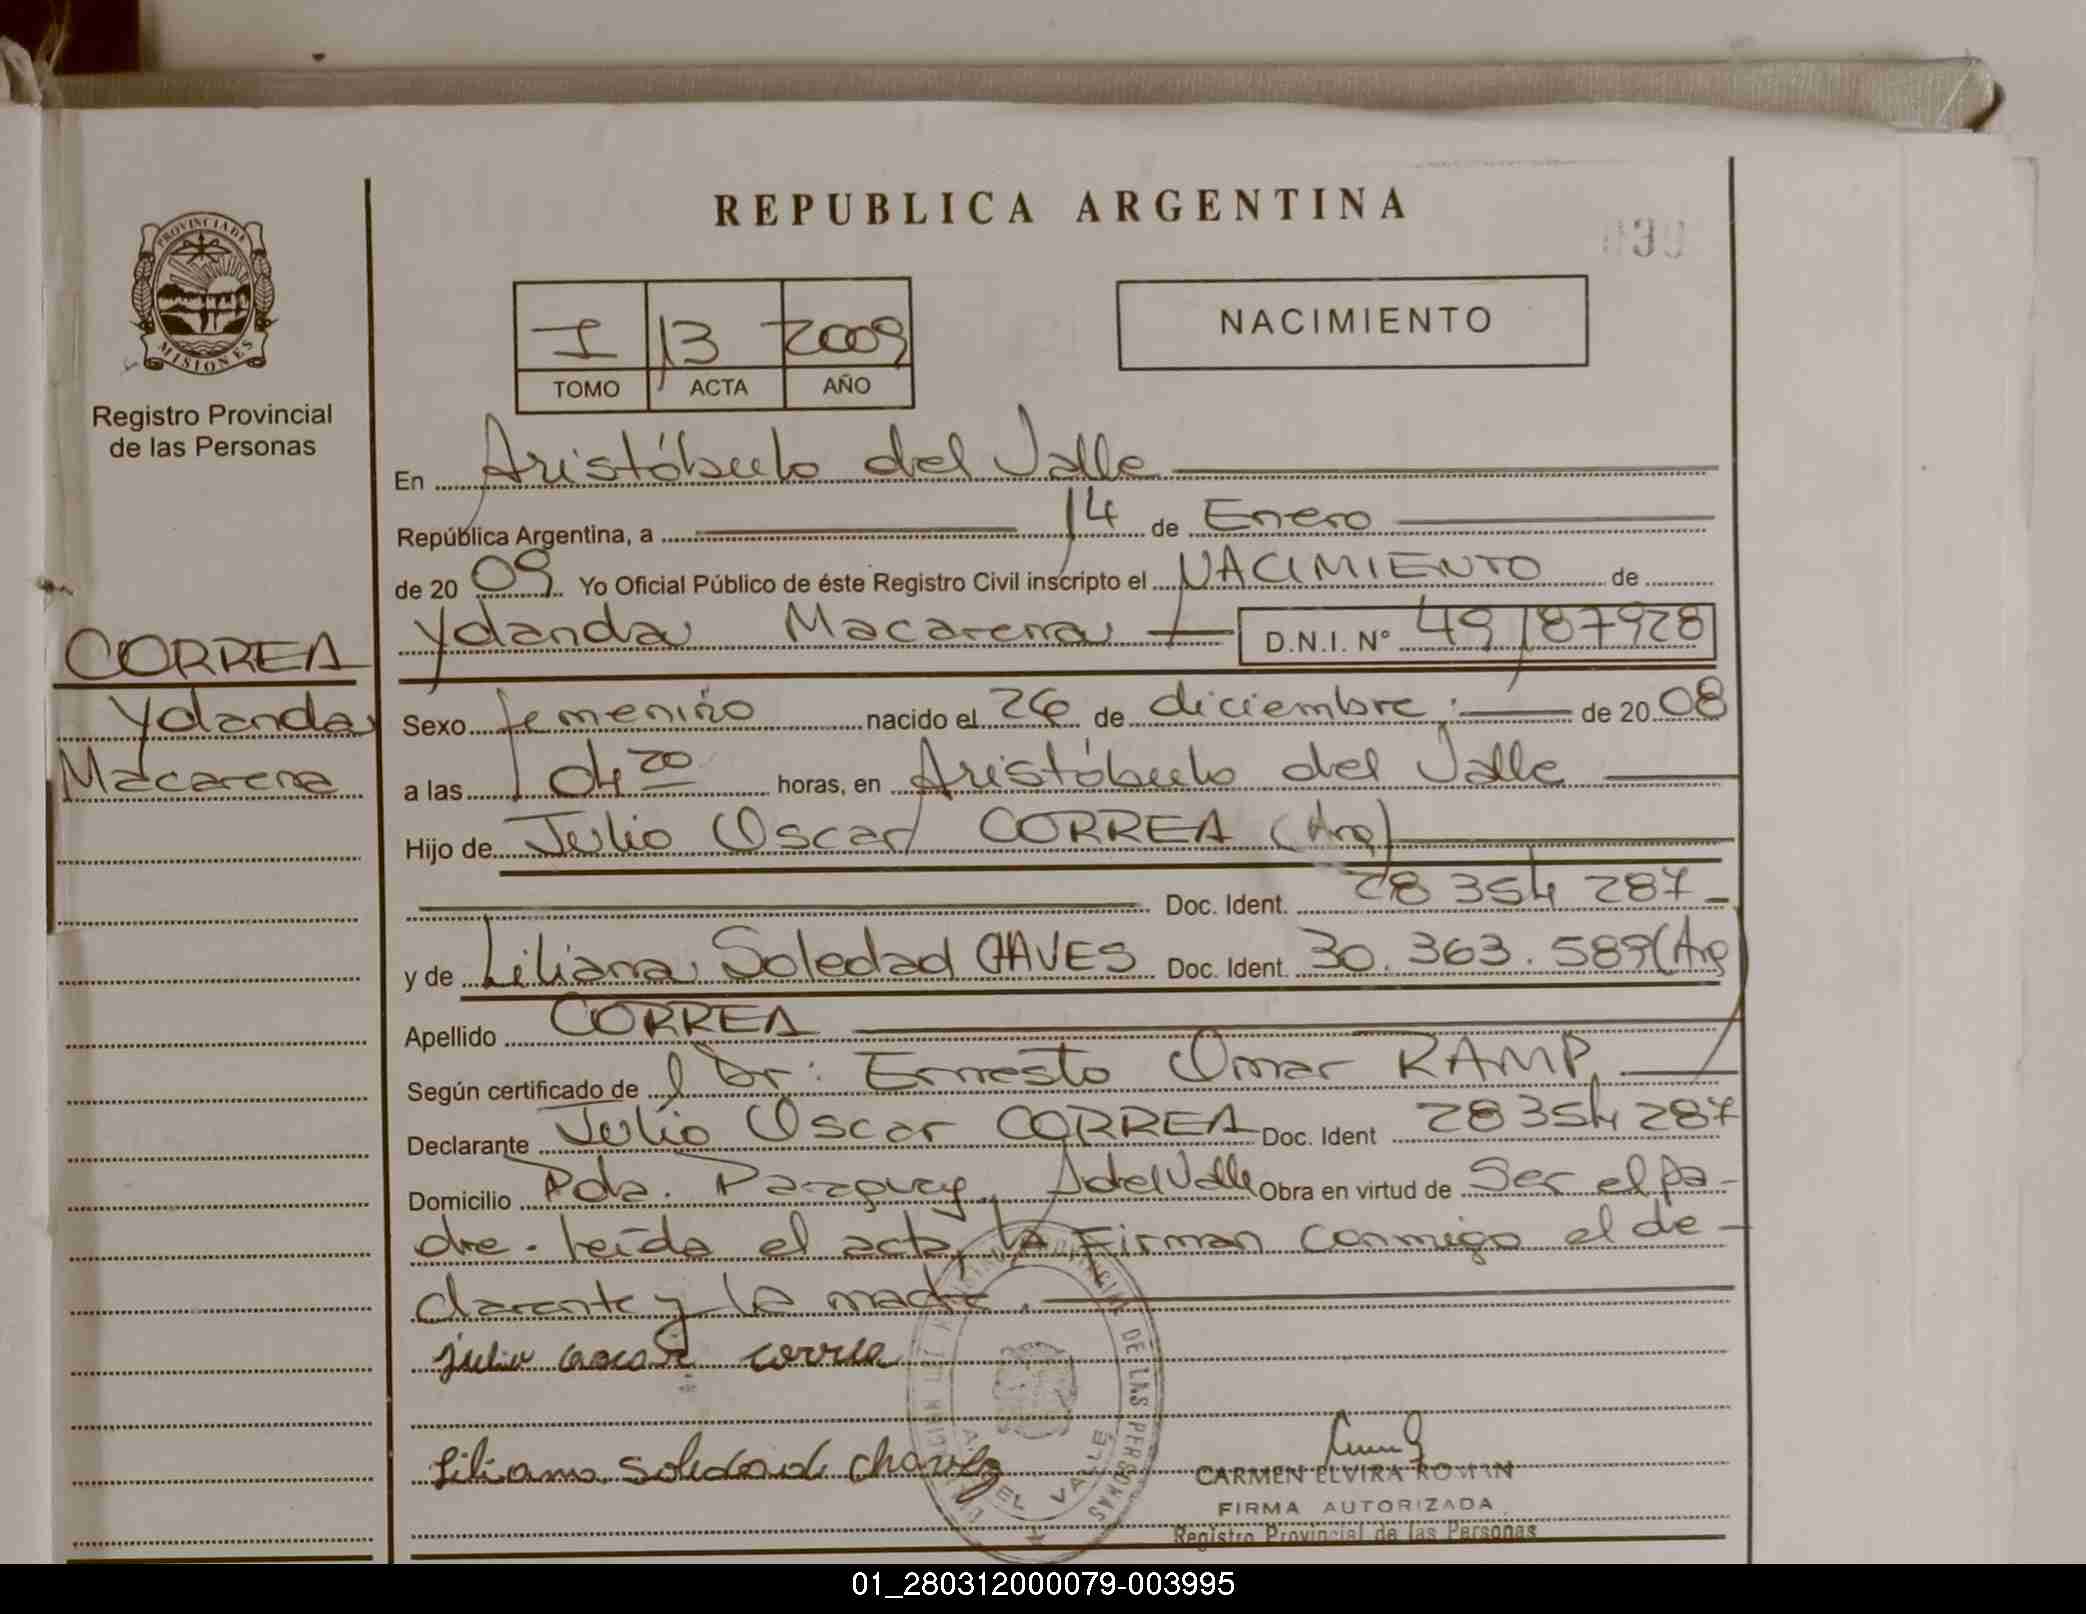 REPUBLICA ARGENTINA
PROVINCIA DE
MISIONES
Registro Provincial
de las Personas
I 13 2009
TOMO ACTA AÑO
NACIMIENTO
En Aristóbulo del Valle
República Argentina, a 14 de Enero
de 20 09 Yo Oficial Público de éste Registro Civil inscripto el NACIMIENTO de
Yolanda Macarena D.N.I. Nº 49187928
CORREA
Yolanda
Macarena
Sexo femenino nacido el 26 de diciembre de 20 08
a las 04 20 horas, en Aristóbulo del Valle
Hijo de Julio Oscar CORREA (Arg)
Doc. Ident. 28 354 287
y de Liliana Soledad CHAVES Doc. Ident. 30.363.589 (Arg
Apellido CORREA
Según certificado de Dr. Ernesto Omar RAMP.
Declarante Julio Oscar CORREA Doc. Ident 28 354 287
Domicilio Pda. Paraguay, A del Valle Obra en virtud de Ser el pa-
dre. leída el acta, la Firman conmigo el de-
clarante y la madre.
julio oscar correa
liliana soledad chavez
A. DEL VALLE
DE LAS PERSONAS
CARMEN ELVIRA ROMAN
FIRMA AUTORIZADA
Registro Provincial de las Personas
01_280312000079-003995